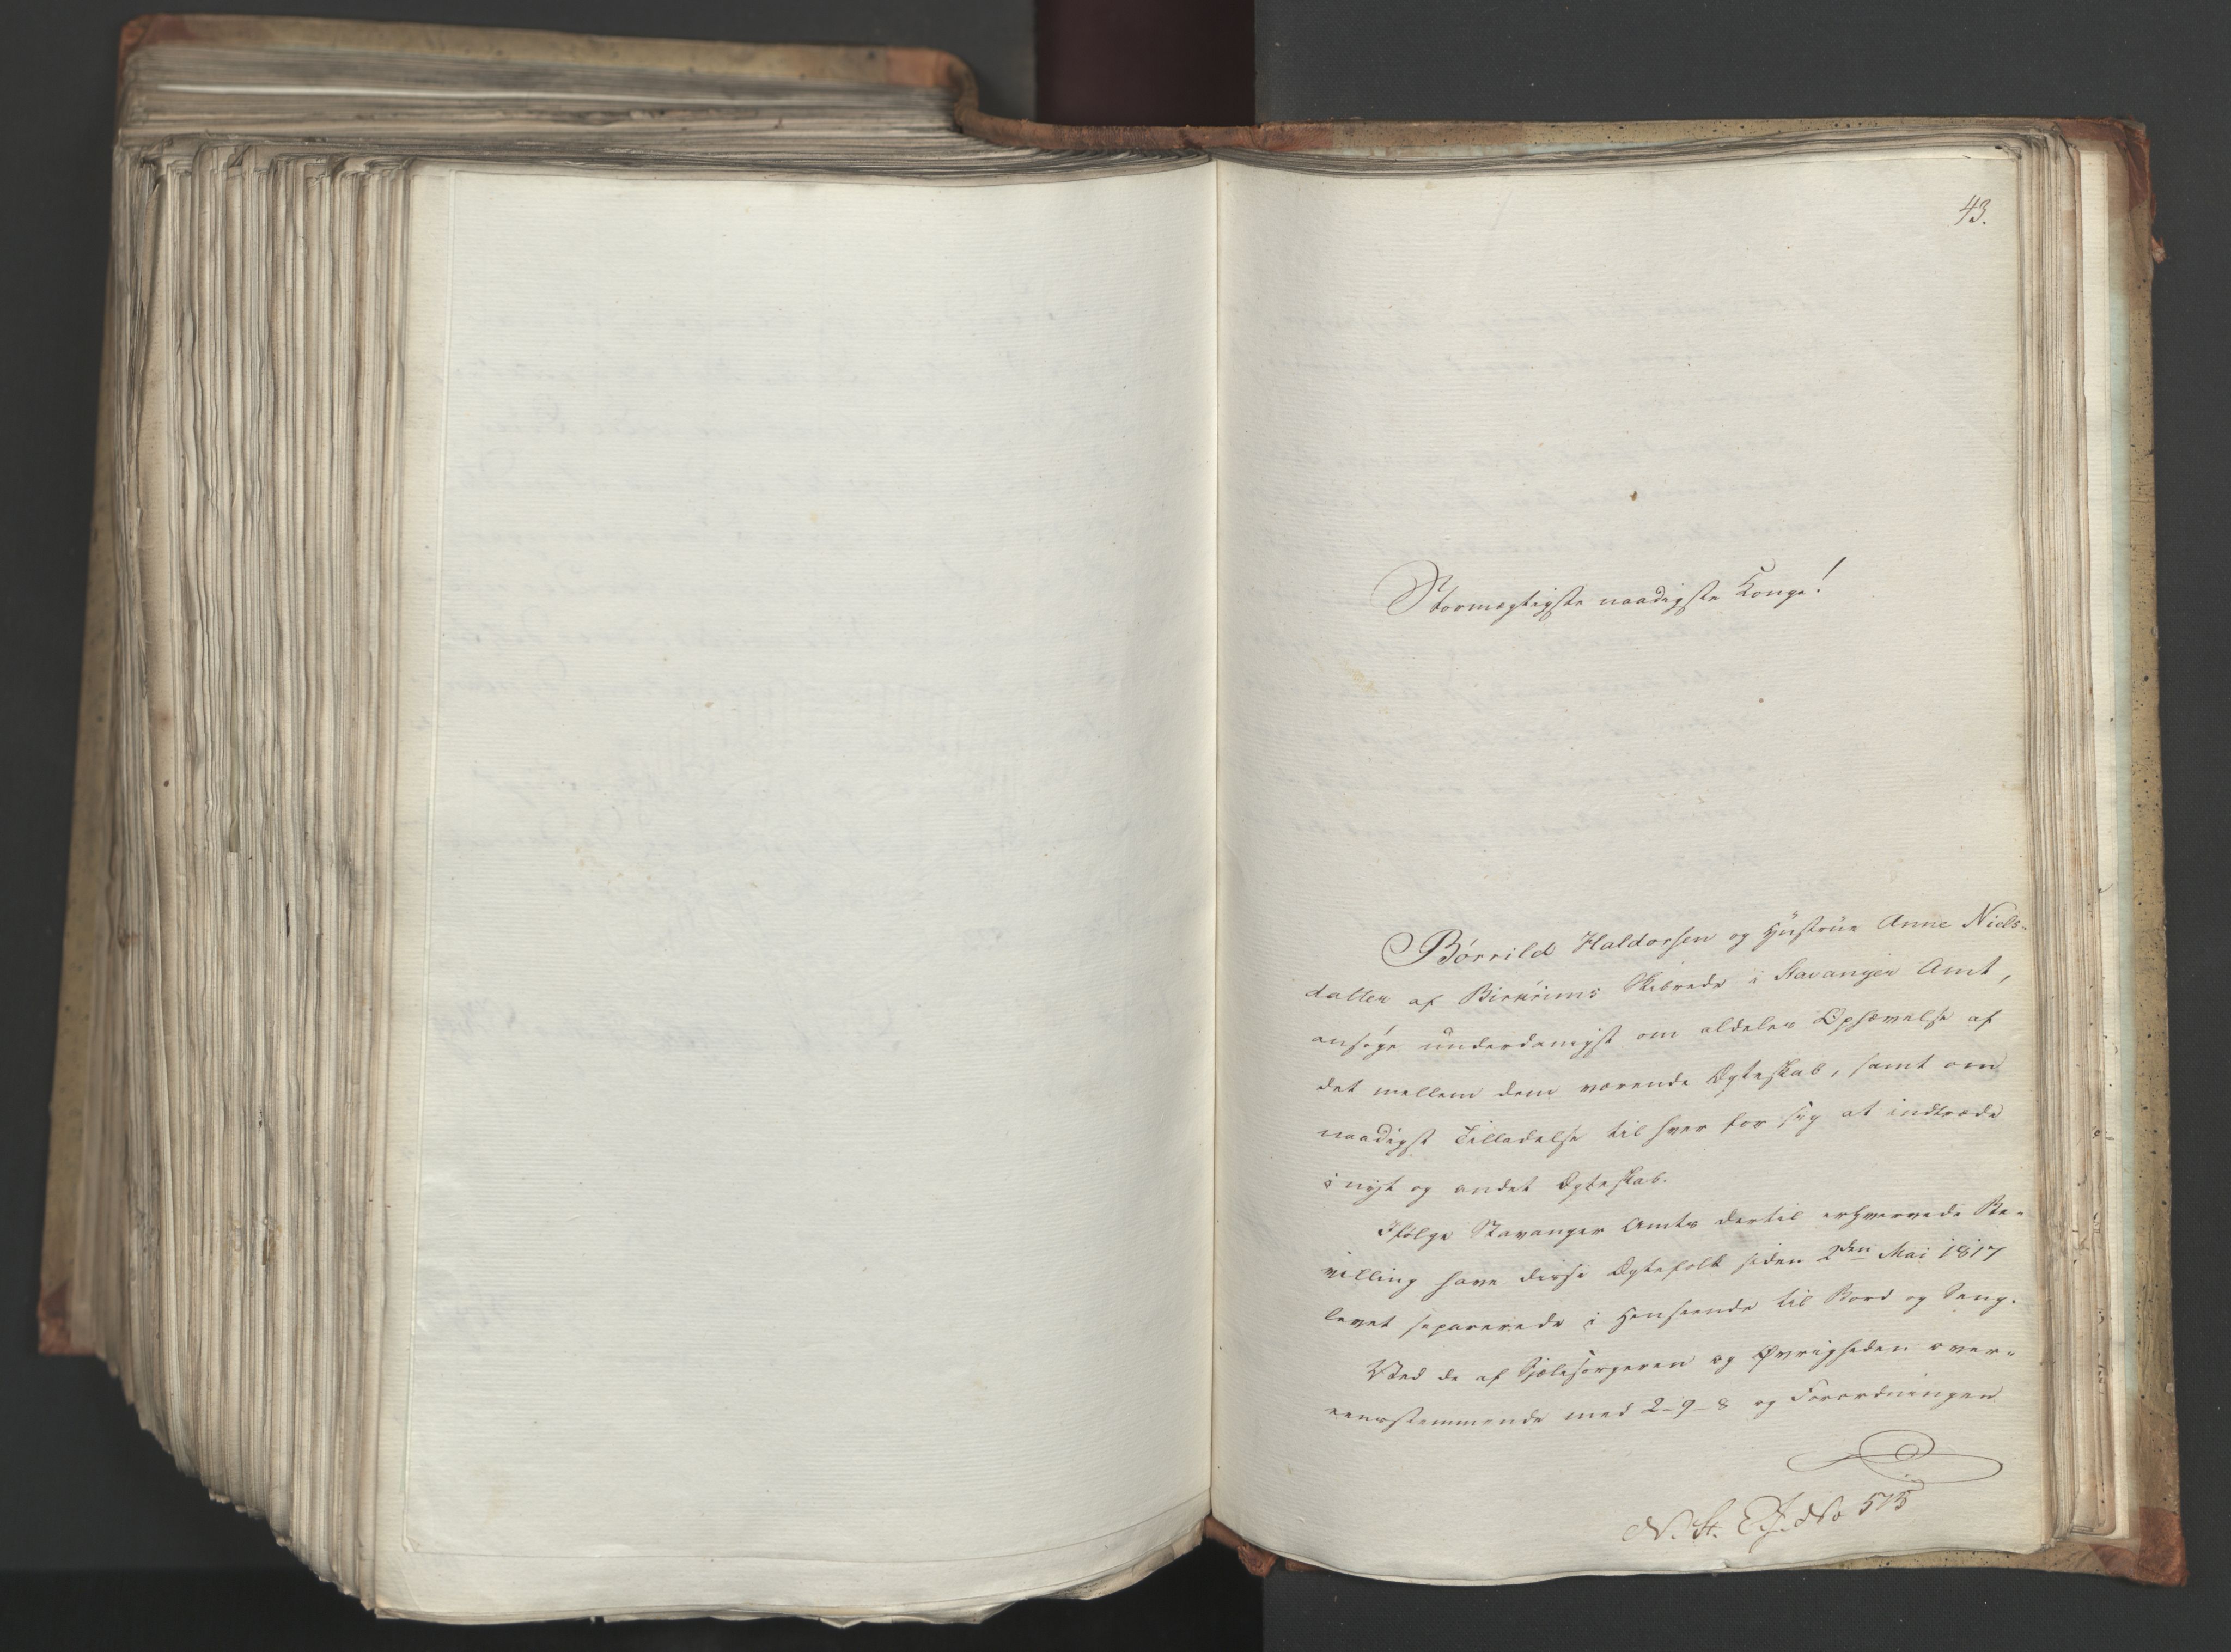 43.
Stormægtigste naadigste Konge!
Børrild Haldorsen og Hustrue Anne Niels-
datter af Birkrims Skibrede i Stavanger Amt,
ansøge underdanigst om aldeles Ophævelse af
det mellem dem værende Ægteskab, samt om
naadigst Tilladelse til hver for sig at indtræde
i nyt og andet Ægteskab.
Ifølge Stavanger Amts dertil erhvervede Be-
villing have disse Ægtefolk siden 2den Mai 1817
levet separerede i Henseende til Bord og Seng.
Ved de af Sjælesørgeren og Øvrigheden over-
eensstemmende med 2-9-8 og Forordningen
N. St. No 515